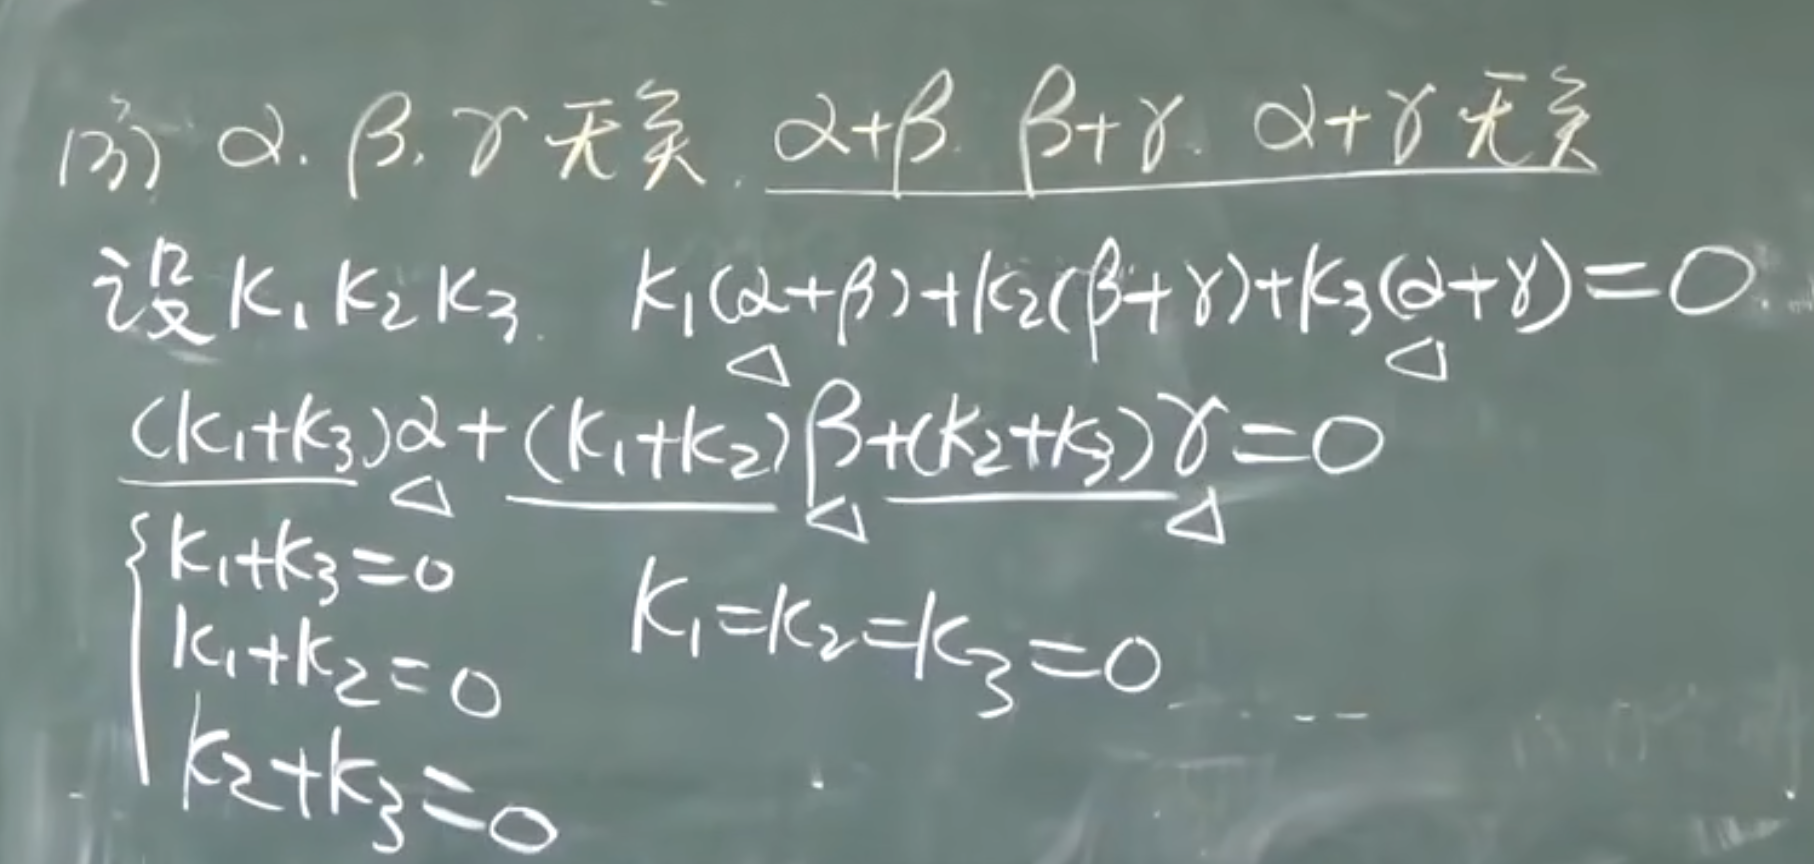 例) α. β. γ 无关. α+β. β+γ. α+γ 无关
设 K₁ K₂ K₃. K₁(α+β)+K₂(β+γ)+K₃(α+γ)=0
(K₁+K₃)α+(K₁+K₂)β+(K₂+K₃)γ=0
{K₁+K₃=0
K₁+K₂=0 K₁=K₂=K₃=0
K₂+K₃=0